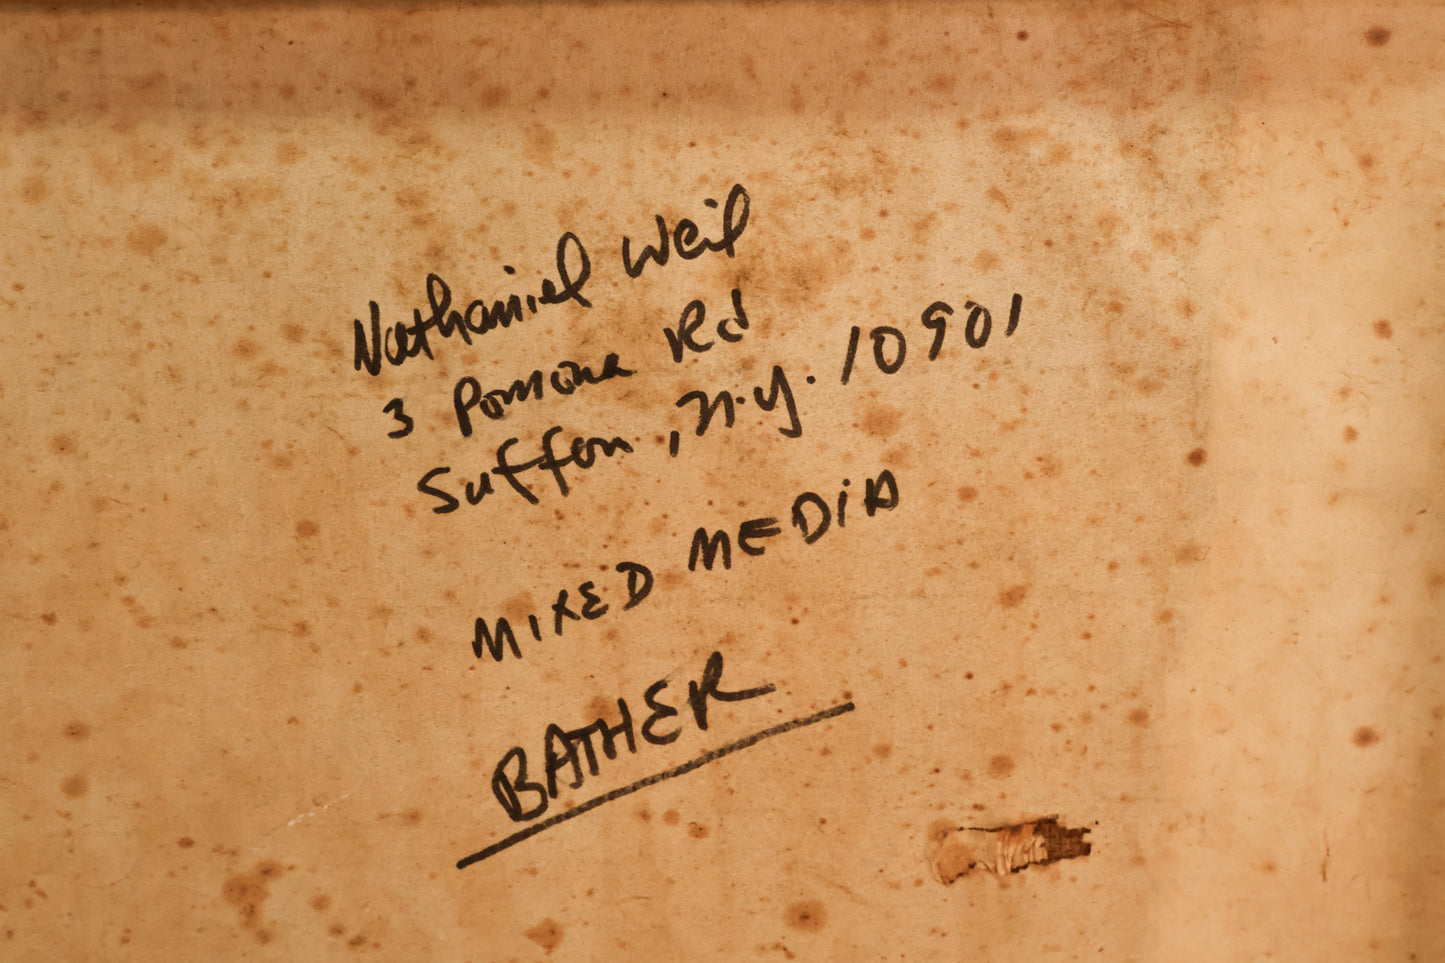 Nathaniel Weil
3 Pomona Rd
Suffon, N.Y. 10901
MIXED MEDIA
BATHER